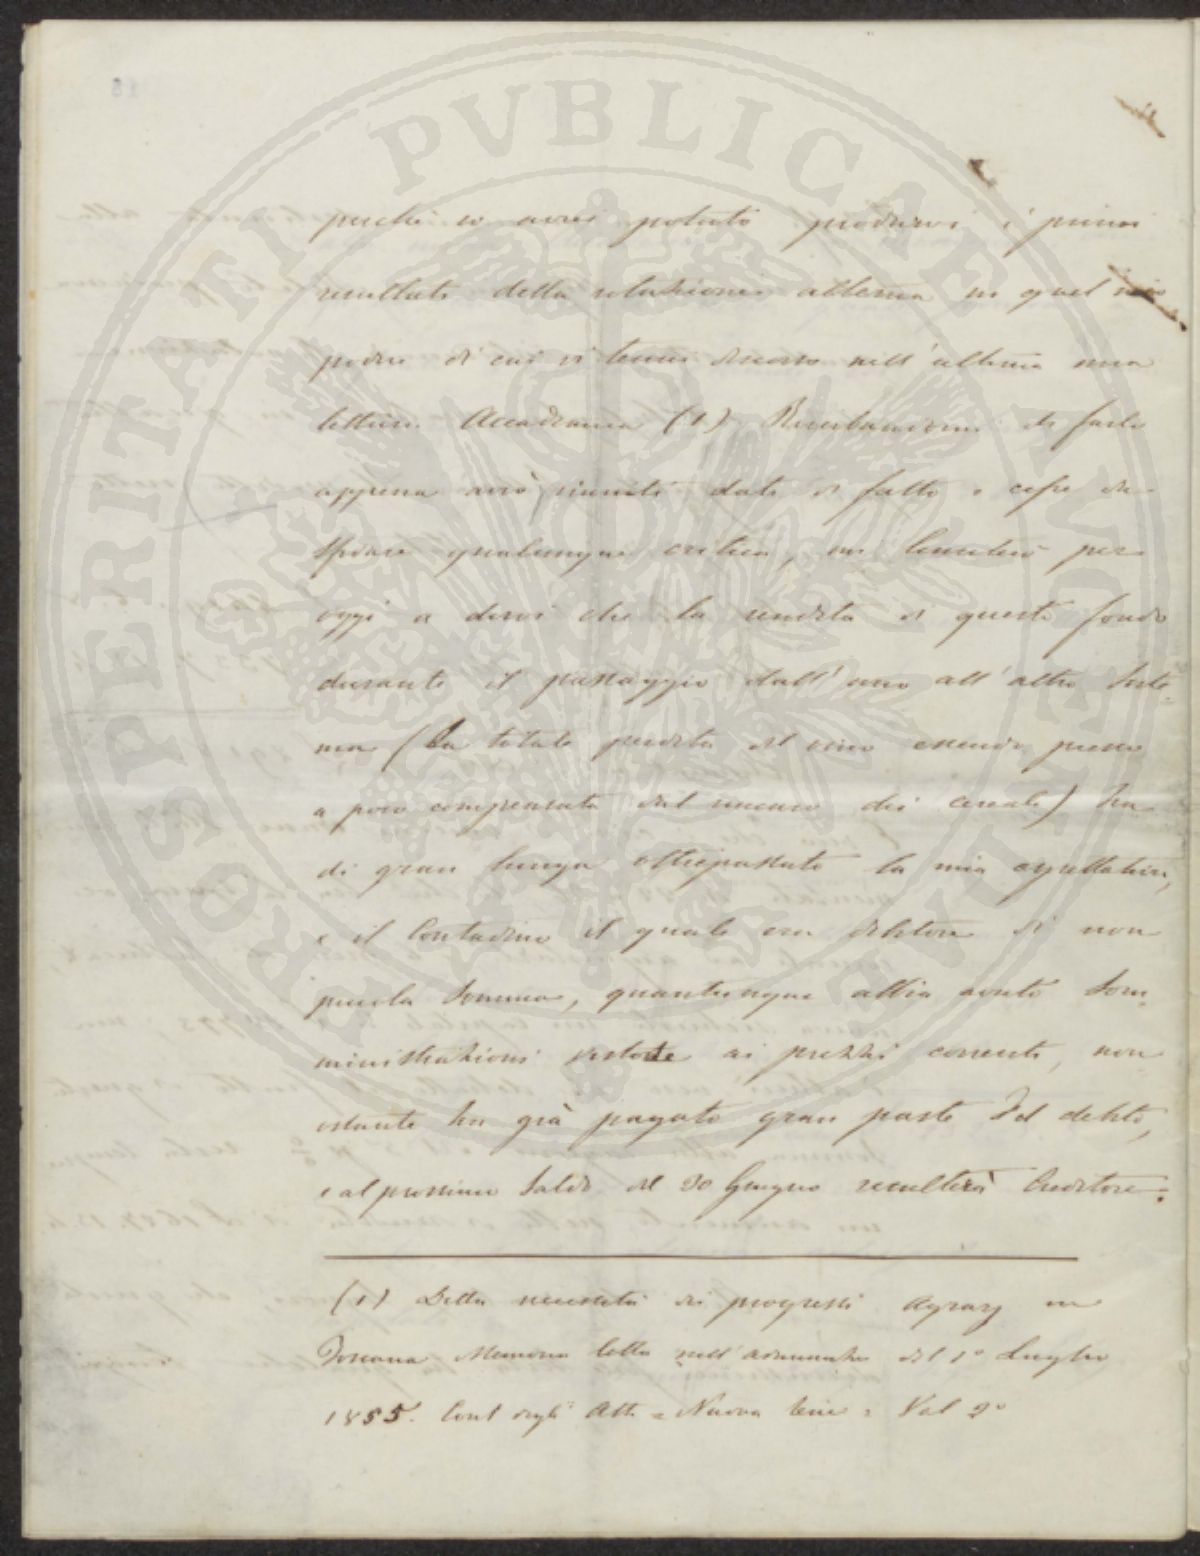 perchè io avrei potuto produrvi i primi
resultati della rotazione alterna in quel mio
podere di cui vi tenni discorso nell'ultima mia
lettura Accademica (1) Riserbandomi di farlo
appena avrò riuniti dati di fatto e cifre da
sfidare qualunque critica, mi limiterò per
oggi a dirvi che la rendita di questo fondo
durante il passaggio dall'uno all'altro Siste-
ma (La totale perdita del vino essendo presso
a poco compensata dal rincaro dei cereali) ha
di gran lunga oltrepassato la mia aspettativa,
e il Contadino il quale era debitore di non
piccola Somma, quantunque abbia avuto Som-
ministrazioni ai prezzi correnti, non
ostante ha già pagato gran parte del debito,
e al prossimo Saldo del 30 Giugno resulterà Creditore.
(1) Della necessità dei progressi Agrarj in
Toscana Memoria letta nell'adunanza del 1° Luglio
1855. Cont degli Atti = Nuova Serie = Vol 2°
PROSPERITATI PVBLICAE AVGENDAE